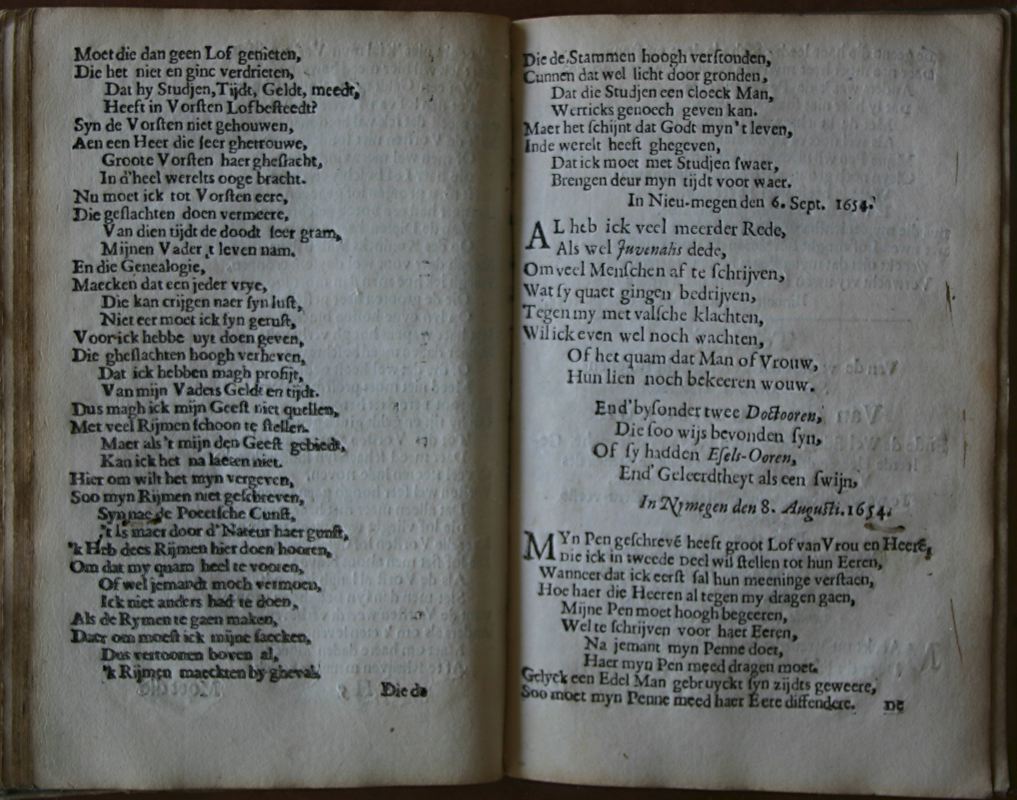 Moet die dan geen Lof genieten,
Die het niet en ginc verdrieten,
Dat hy Studjen, Tijdt, Geldt, meedt,
Heeft in Vorsten Lof besteedt?
Syn de Vorsten niet gehouwen,
Aen een Heer die seer ghetrouwe,
Groote Vorsten haer gheslacht,
In d'heel werelts ooge bracht.
Nu moet ick tot Vorsten eere,
Die geslachten doen vermeere,
Van dien tijdt de doodt seer gram,
Mijnen Vader 't leven nam.
En die Genealogie,
Maecken dat een jeder vrye,
Die kan crijgen naer syn lust,
Niet eer moet ick syn gerust,
Voor ick hebbe uyt doen geven,
Die gheslachten hoogh verheven,
Dat ick hebben magh profijt,
Van mijn Vaders Geldt en tijdt.
Dus magh ick mijn Geest niet quellen,
Met veel Rijmen schoon te stellen.
Maer als 't mijn den Geest gebiedt,
Kan ick het na laeten niet.
Hier om wilt het myn vergeven,
Soo myn Rijmen niet geschreven,
Syn nae de Poetische Cunst,
't Is maer door d'Natuur haer gunst,
'k Heb dees Rijmen hier doen hooren,
Om dat my quam heel te vooren,
Of wel jemandt moch vermoen,
Ick niet anders had te doen,
Als de Rymen te gaen maken,
Daer om moest ick mijne saecken,
Dus vertoonen boven al,
'k Rijmen maeckten by gheval.
Die de
Die de Stammen hoogh verstonden,
Cunnen dat wel licht door gronden,
Dat die Studjen een cloeck Man,
Werricks genoech geven kan.
Maer het schijnt dat Godt myn't leven,
Inde werelt heeft ghegeven,
Dat ick moet met Studjen swaer,
Brengen deur myn tijdt voor waer.
In Nieu-megen den 6. Sept. 1654.
AL heb ick veel meerder Rede,
Als wel Juvenalis dede,
Om veel Menschen af te schrijven,
Wat sy quaet gingen bedrijven,
Tegen my met valsche klachten,
Wil ick even wel noch wachten,
Of het quam dat Man of Vrouw,
Hun lien noch bekeeren wouw.
End' bysonder twee Doctooren,
Die soo wijs bevonden syn,
Of sy hadden Esels-Ooren,
End' Geleerdtheyt als een swijn,
In Nymegen den 8. Augusti. 1654.
MYn Pen geschrevé heeft groot Lof van Vrou en Heeré,
Die ick in tweede Deel wil stellen tot hun Eeren,
Wanneer dat ick eerst sal hun meeninge verstaen,
Hoe haer die Heeren al tegen my dragen gaen,
Mijne Pen moet hoogh begeeren,
Wel te schrijven voor haer Eeren,
Na jemant myn Penne doet,
Haer myn Pen meed dragen moet.
Gelyck een Edel Man gebruyckt syn zijdts geweere,
Soo moet myn Penne meed haer Eere diffendere.
De